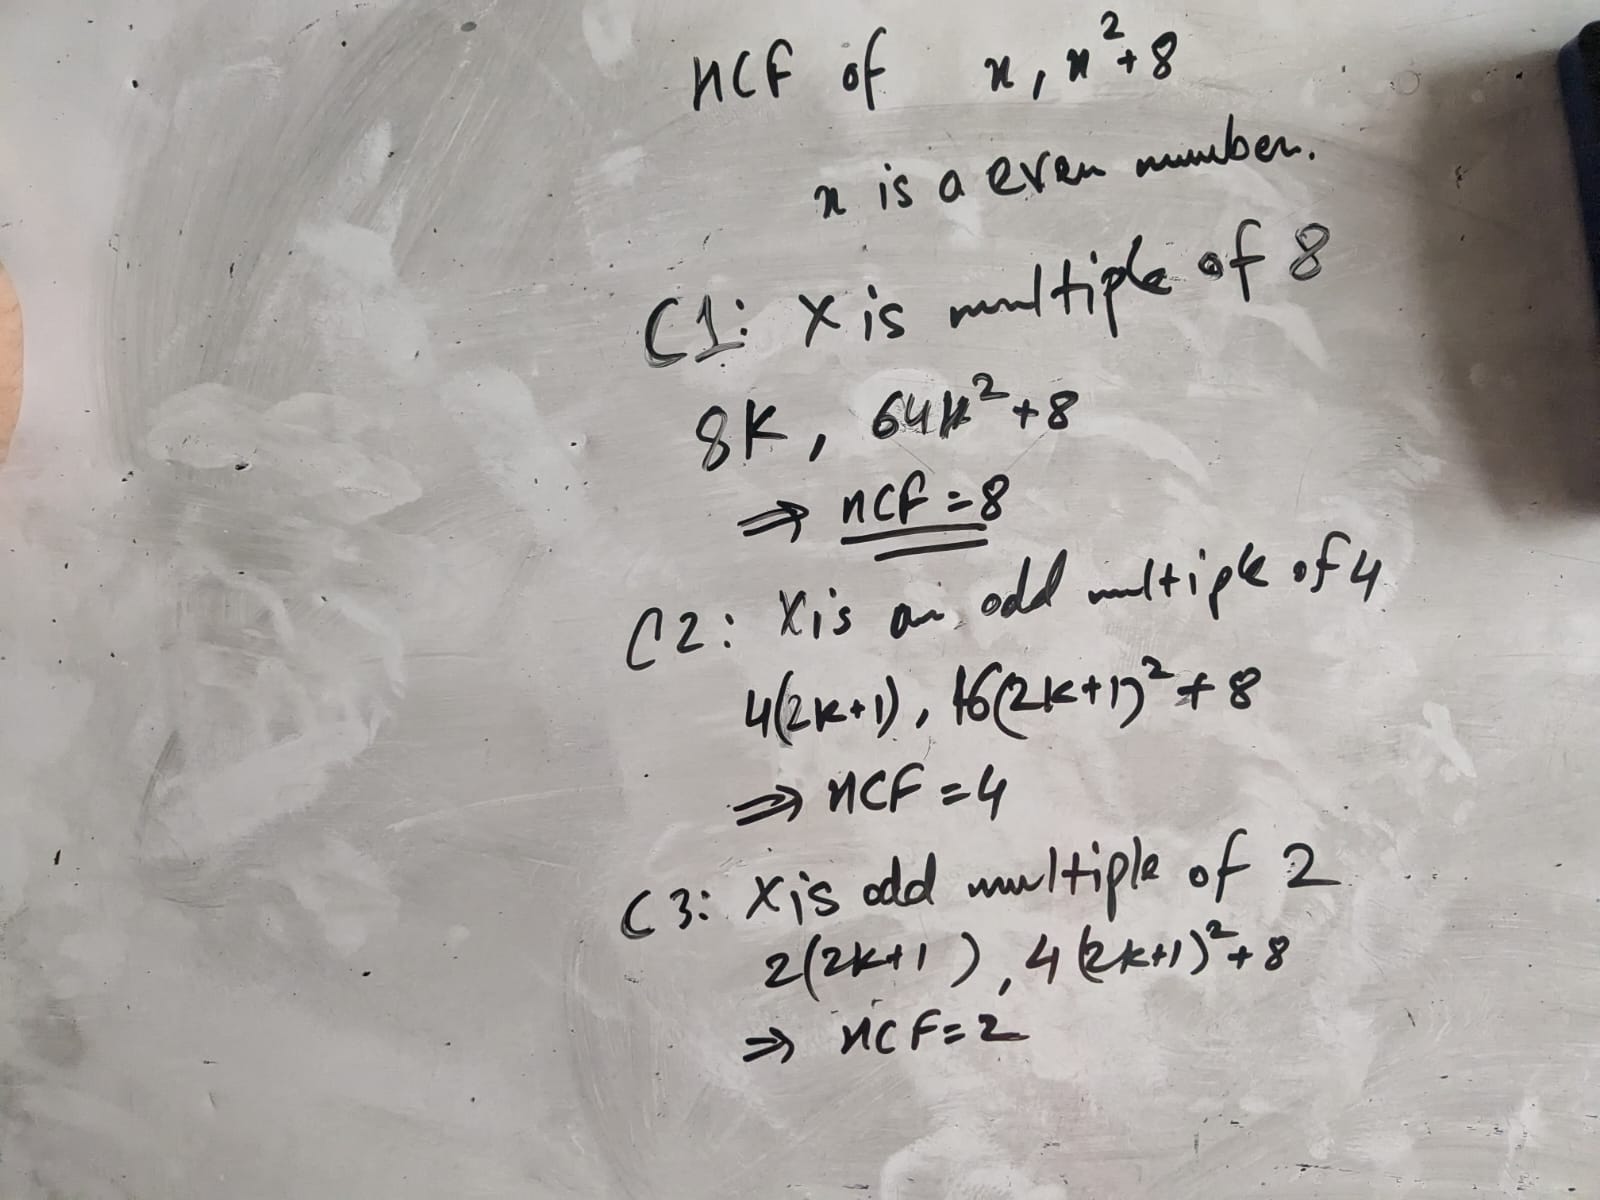 HCF of x, x²+8
x is a even number.
C1: X is multiple of 8
8K, 64k²+8
⇒ HCF=8
C2: X is an odd multiple of 4
4(2k+1), 16(2k+1)²+8
⇒ HCF=4
C3: X is odd multiple of 2
2(2k+1), 4(2k+1)²+8
⇒ HCF=2